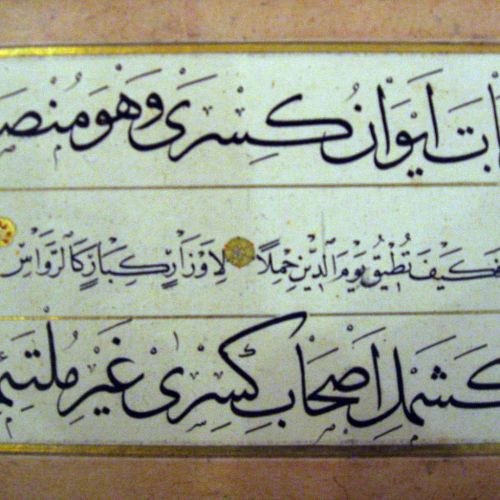 بات ايوان كسرى وهو منصد
فكيف تطيق يوم الدين حملا لاوزار كبار كالرواس
كشمل اصحاب كسرى غير ملتئم